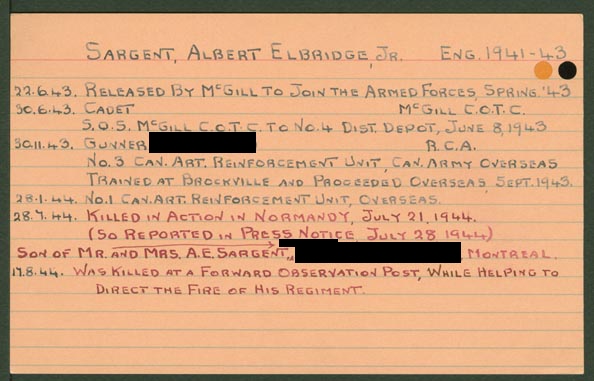 SARGENT, ALBERT ELBRIDGE, JR. ENG. 1941-43
22.6.43. RELEASED BY MCGILL TO JOIN THE ARMED FORCES, SPRING. '43
30.6.43. CADET MCGILL C.O.T.C.
S.O.S. MCGILL C.O.T.C. TO NO.4 DIST. DEPOT, JUNE 8, 1943
30.11.43. GUNNER R.C.A.
NO.3 CAN. ART. REINFORCEMENT UNIT, CAN. ARMY OVERSEAS
TRAINED AT BROCKVILLE AND PROCEEDED OVERSEAS, SEPT. 1943.
28.1.44. NO.1 CAN. ART. REINFORCEMENT UNIT, OVERSEAS.
28.7.44. KILLED IN ACTION IN NORMANDY, JULY 21, 1944.
(SO REPORTED IN PRESS NOTICE, JULY 28 1944)
SON OF MR. AND MRS. A.E. SARGENT, MONTREAL.
17.8.44. WAS KILLED AT A FORWARD OBSERVATION POST, WHILE HELPING TO
DIRECT THE FIRE OF HIS REGIMENT.